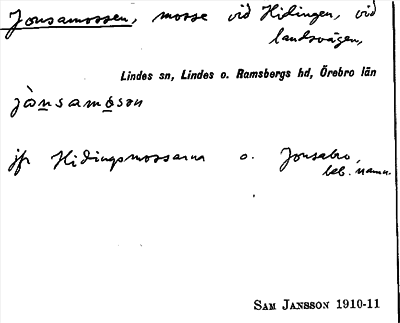 Jonsamossen, mosse vid Hidingen, vid
landsvägen,
Lindes sn, Lindes o. Ramsbergs hd, Örebro län
jånsamåsən
jfr Hidingsmossarna o. Jonsabro,
beb. namn.
SAM JANSSON 1910-11